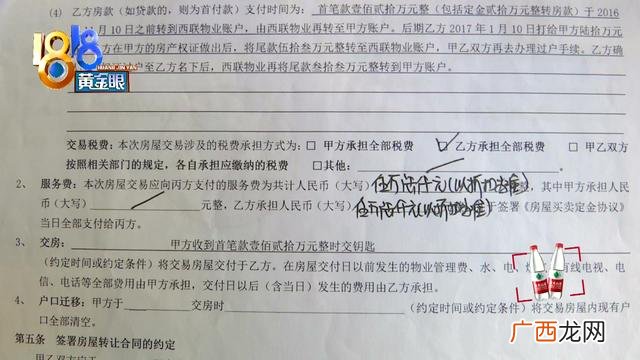 (4) 乙方房款（如贷款的，则为首付款）支付时间为：首笔款壹佰贰拾万元整（包括定金贰拾万元整转房款）于 2016
月 10 日之前转到西联物业账户，由西联物业再转至甲方账户。后期乙方 2017 年 1 月 10 日打给甲方陆拾万元
方在甲方的房产权证做出后，将尾款伍拾叁万元整转到西联物业账户，甲乙双方再去办理过户手续。乙方确
户至乙方名下后，西联物业再将尾款叁拾叁万元整转到甲方账户。
1818
黄金眼
交易税费：本次房屋交易涉及的税费承担方式为：□ 甲方承担全部税费 ☑ 乙方承担全部税费 □ 甲乙双方
按照相关部门的规定，各自承担应缴纳的税费 □ 其他：
2、 服务费：本次房屋交易应向丙方支付的服务费为共计人民币（大写） 整，其中甲方承担人民
币（大写） 元整，乙方承担人民币（大写） 于签署《房屋买卖定金协议》
当日全部支付给丙方。
3、 交房： 甲方收到首笔款壹佰贰拾万元整时交钥匙
（约定时间或约定条件）将交易房屋交付于乙方。在房屋交付日以前发生的物业管理费、水、电、 有线电视、电
信、电话等全部费用由甲方承担，交付日以后（含当日）发生的费用由乙方承担。
4、 户口迁移：甲方于 交房时 （约定时间或约定条件）将交易房屋内现有户
口全部清空。
第五条 签署房屋转让合同的约定
广西龙网